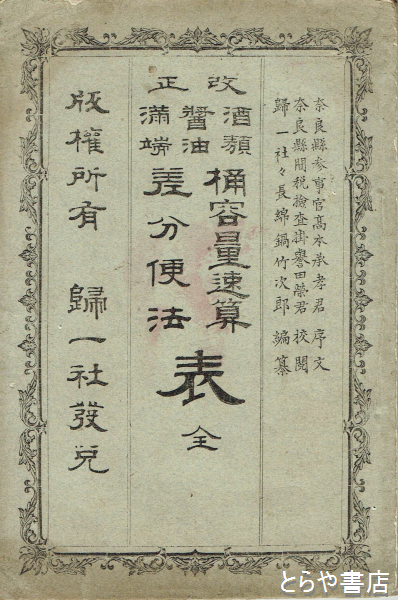 奈良縣参事官髙木承孝君 序文
奈良縣間税檢査掛譽田榮君 校閲
歸一社々長綿鍋竹次郎 編纂
改正
酒類醤油桶容量速算
満端差分便法
表 全
版權所有 歸一社發兌
とらや書店